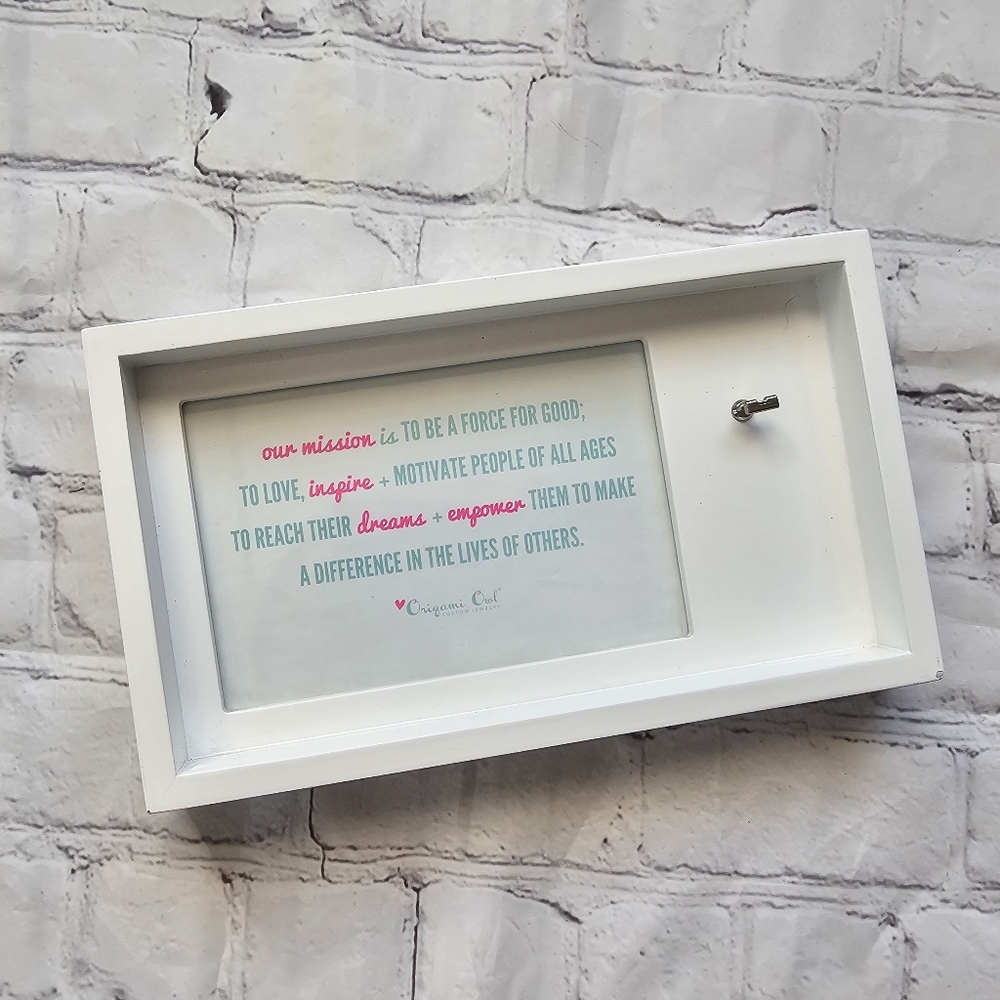 our mission is TO BE A FORCE FOR GOOD;
TO LOVE, inspire + MOTIVATE PEOPLE OF ALL AGES
TO REACH THEIR dreams + empower THEM TO MAKE
A DIFFERENCE IN THE LIVES OF OTHERS.
Origami Owl
CUSTOM JEWELRY